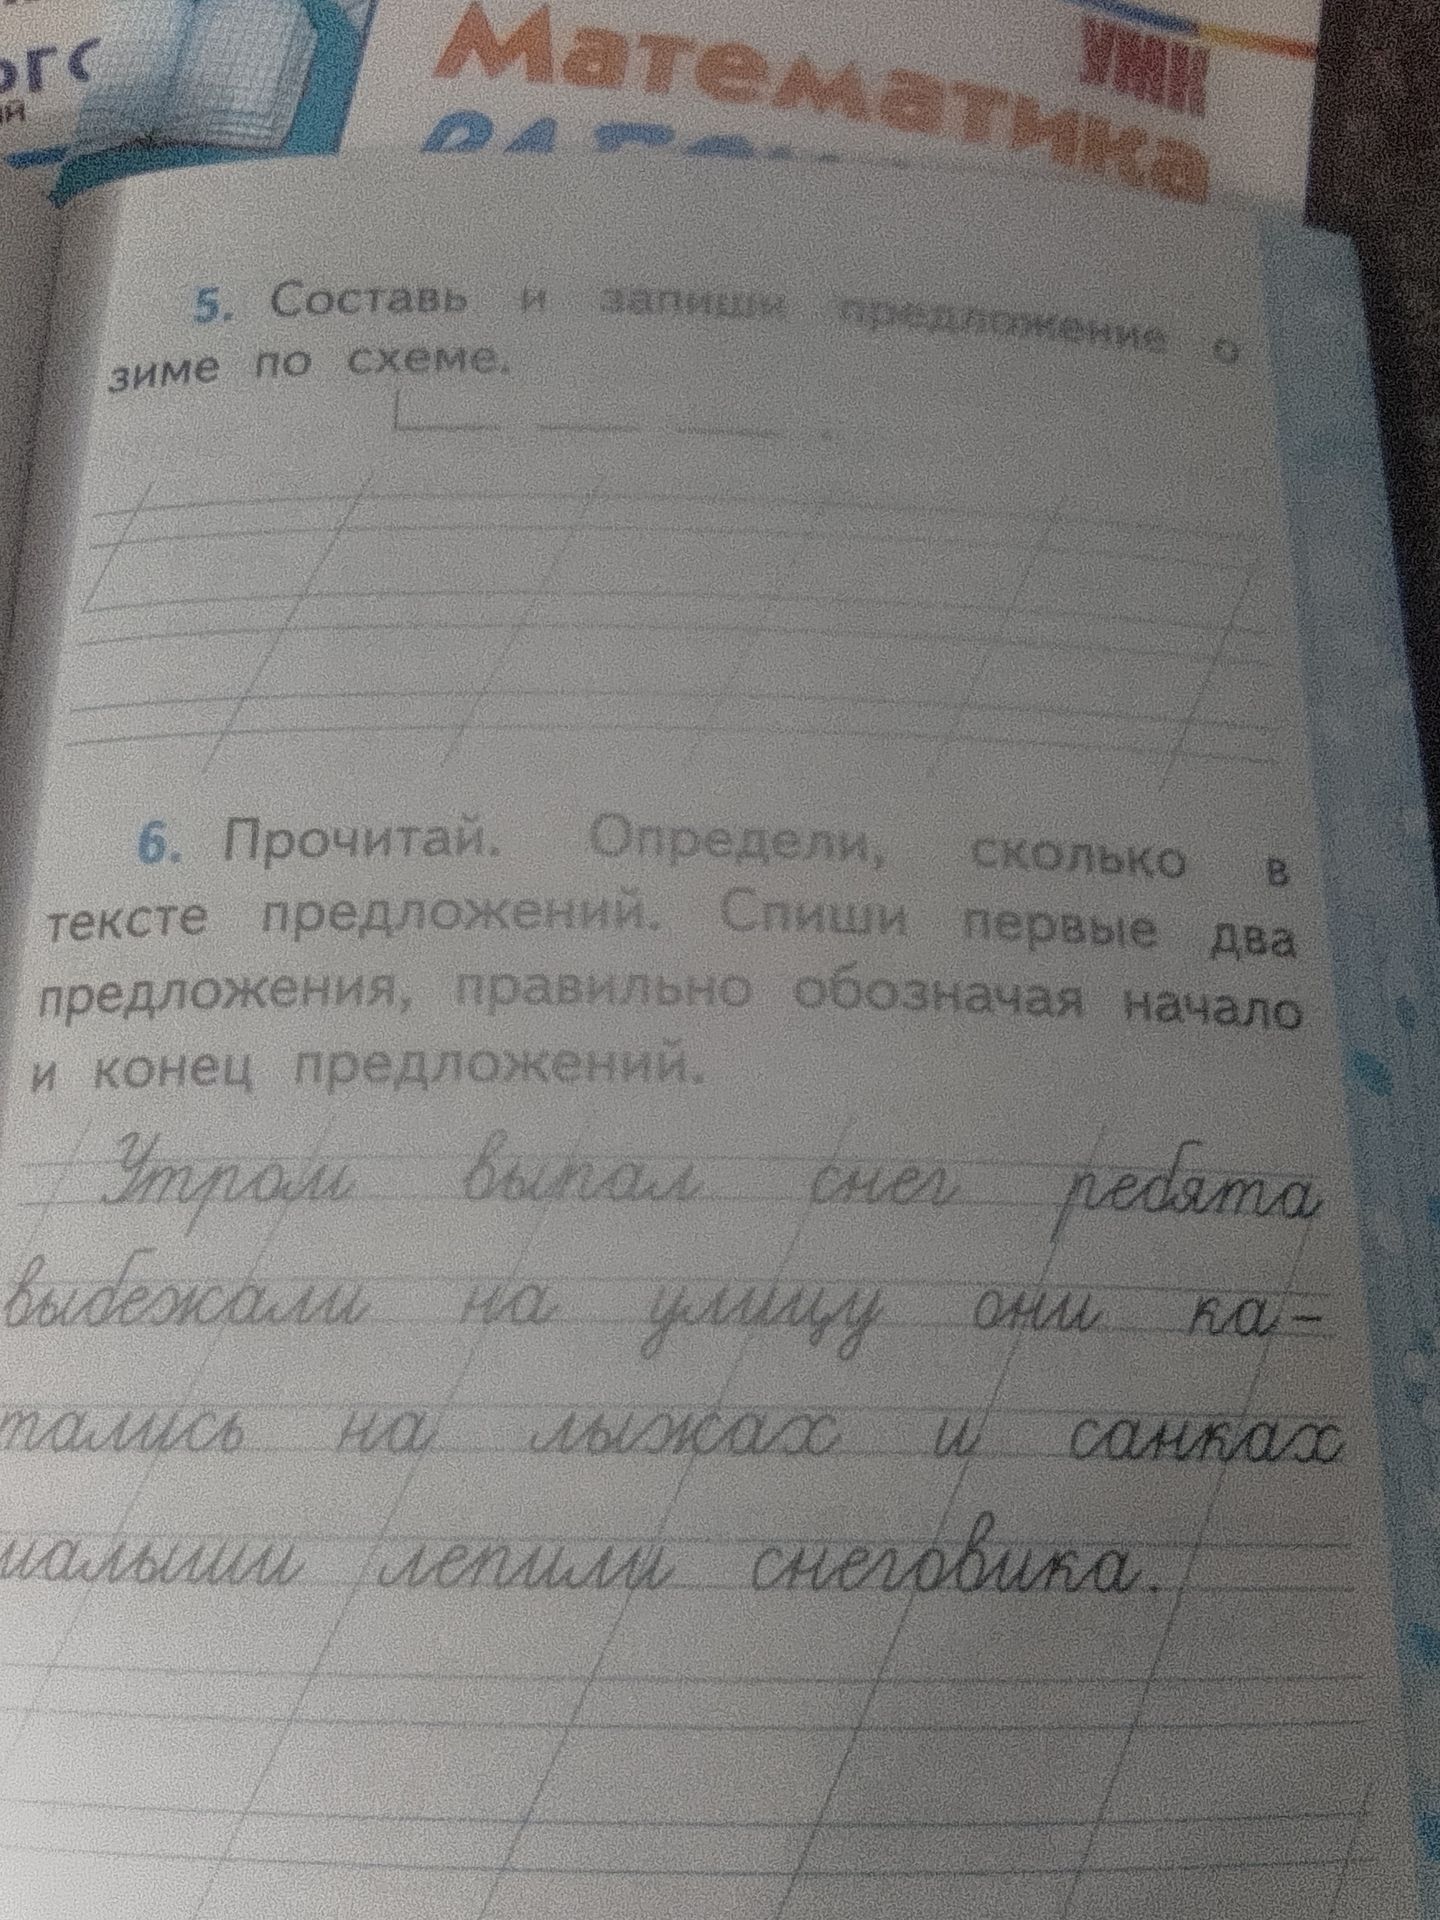 Математика
УМК
5. Составь и запиши предложение о
зиме по схеме.
6. Прочитай. Определи, сколько в
тексте предложений. Спиши первые два
предложения, правильно обозначая начало
и конец предложений.
Утром выпал снег ребята
выбежали на улицу они ка-
тались на лыжах и санках
малыши лепили снеговика.